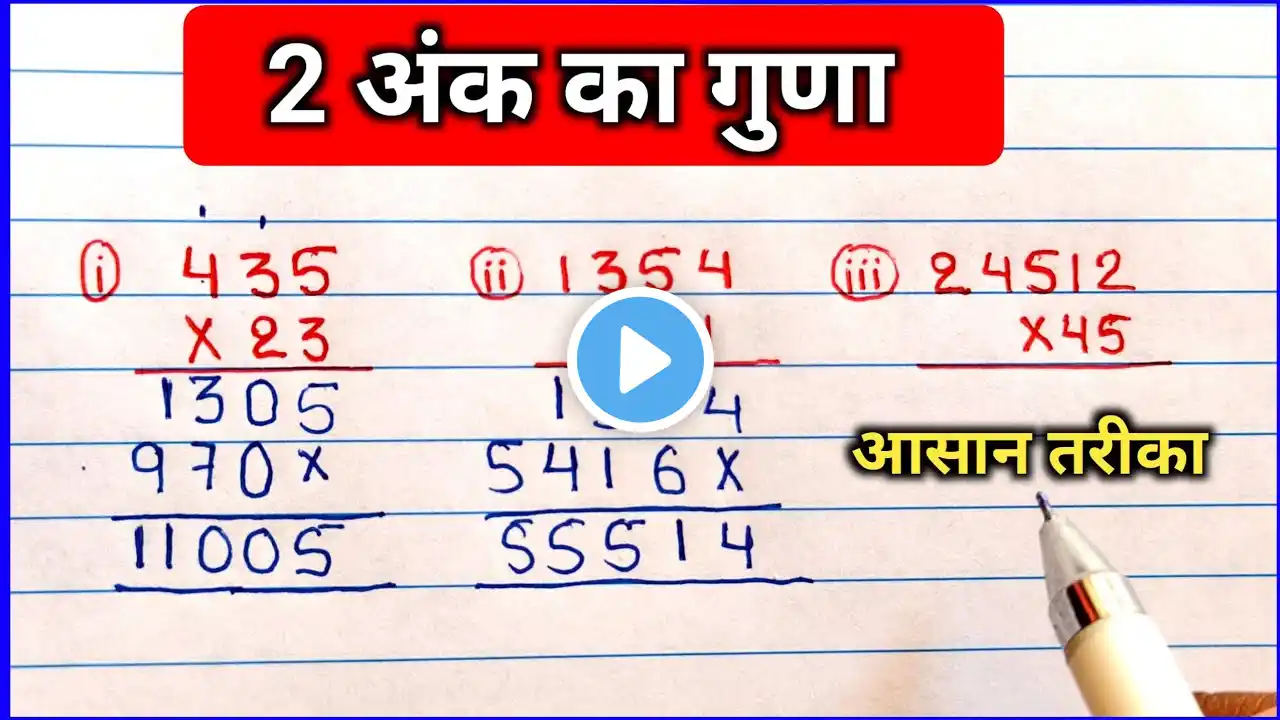 2 अंक का गुणा
i 435
x 23
1305
970x
11005
ii 1354
1 4
5416x
55514
iii 24512
x45
आसान तरीका